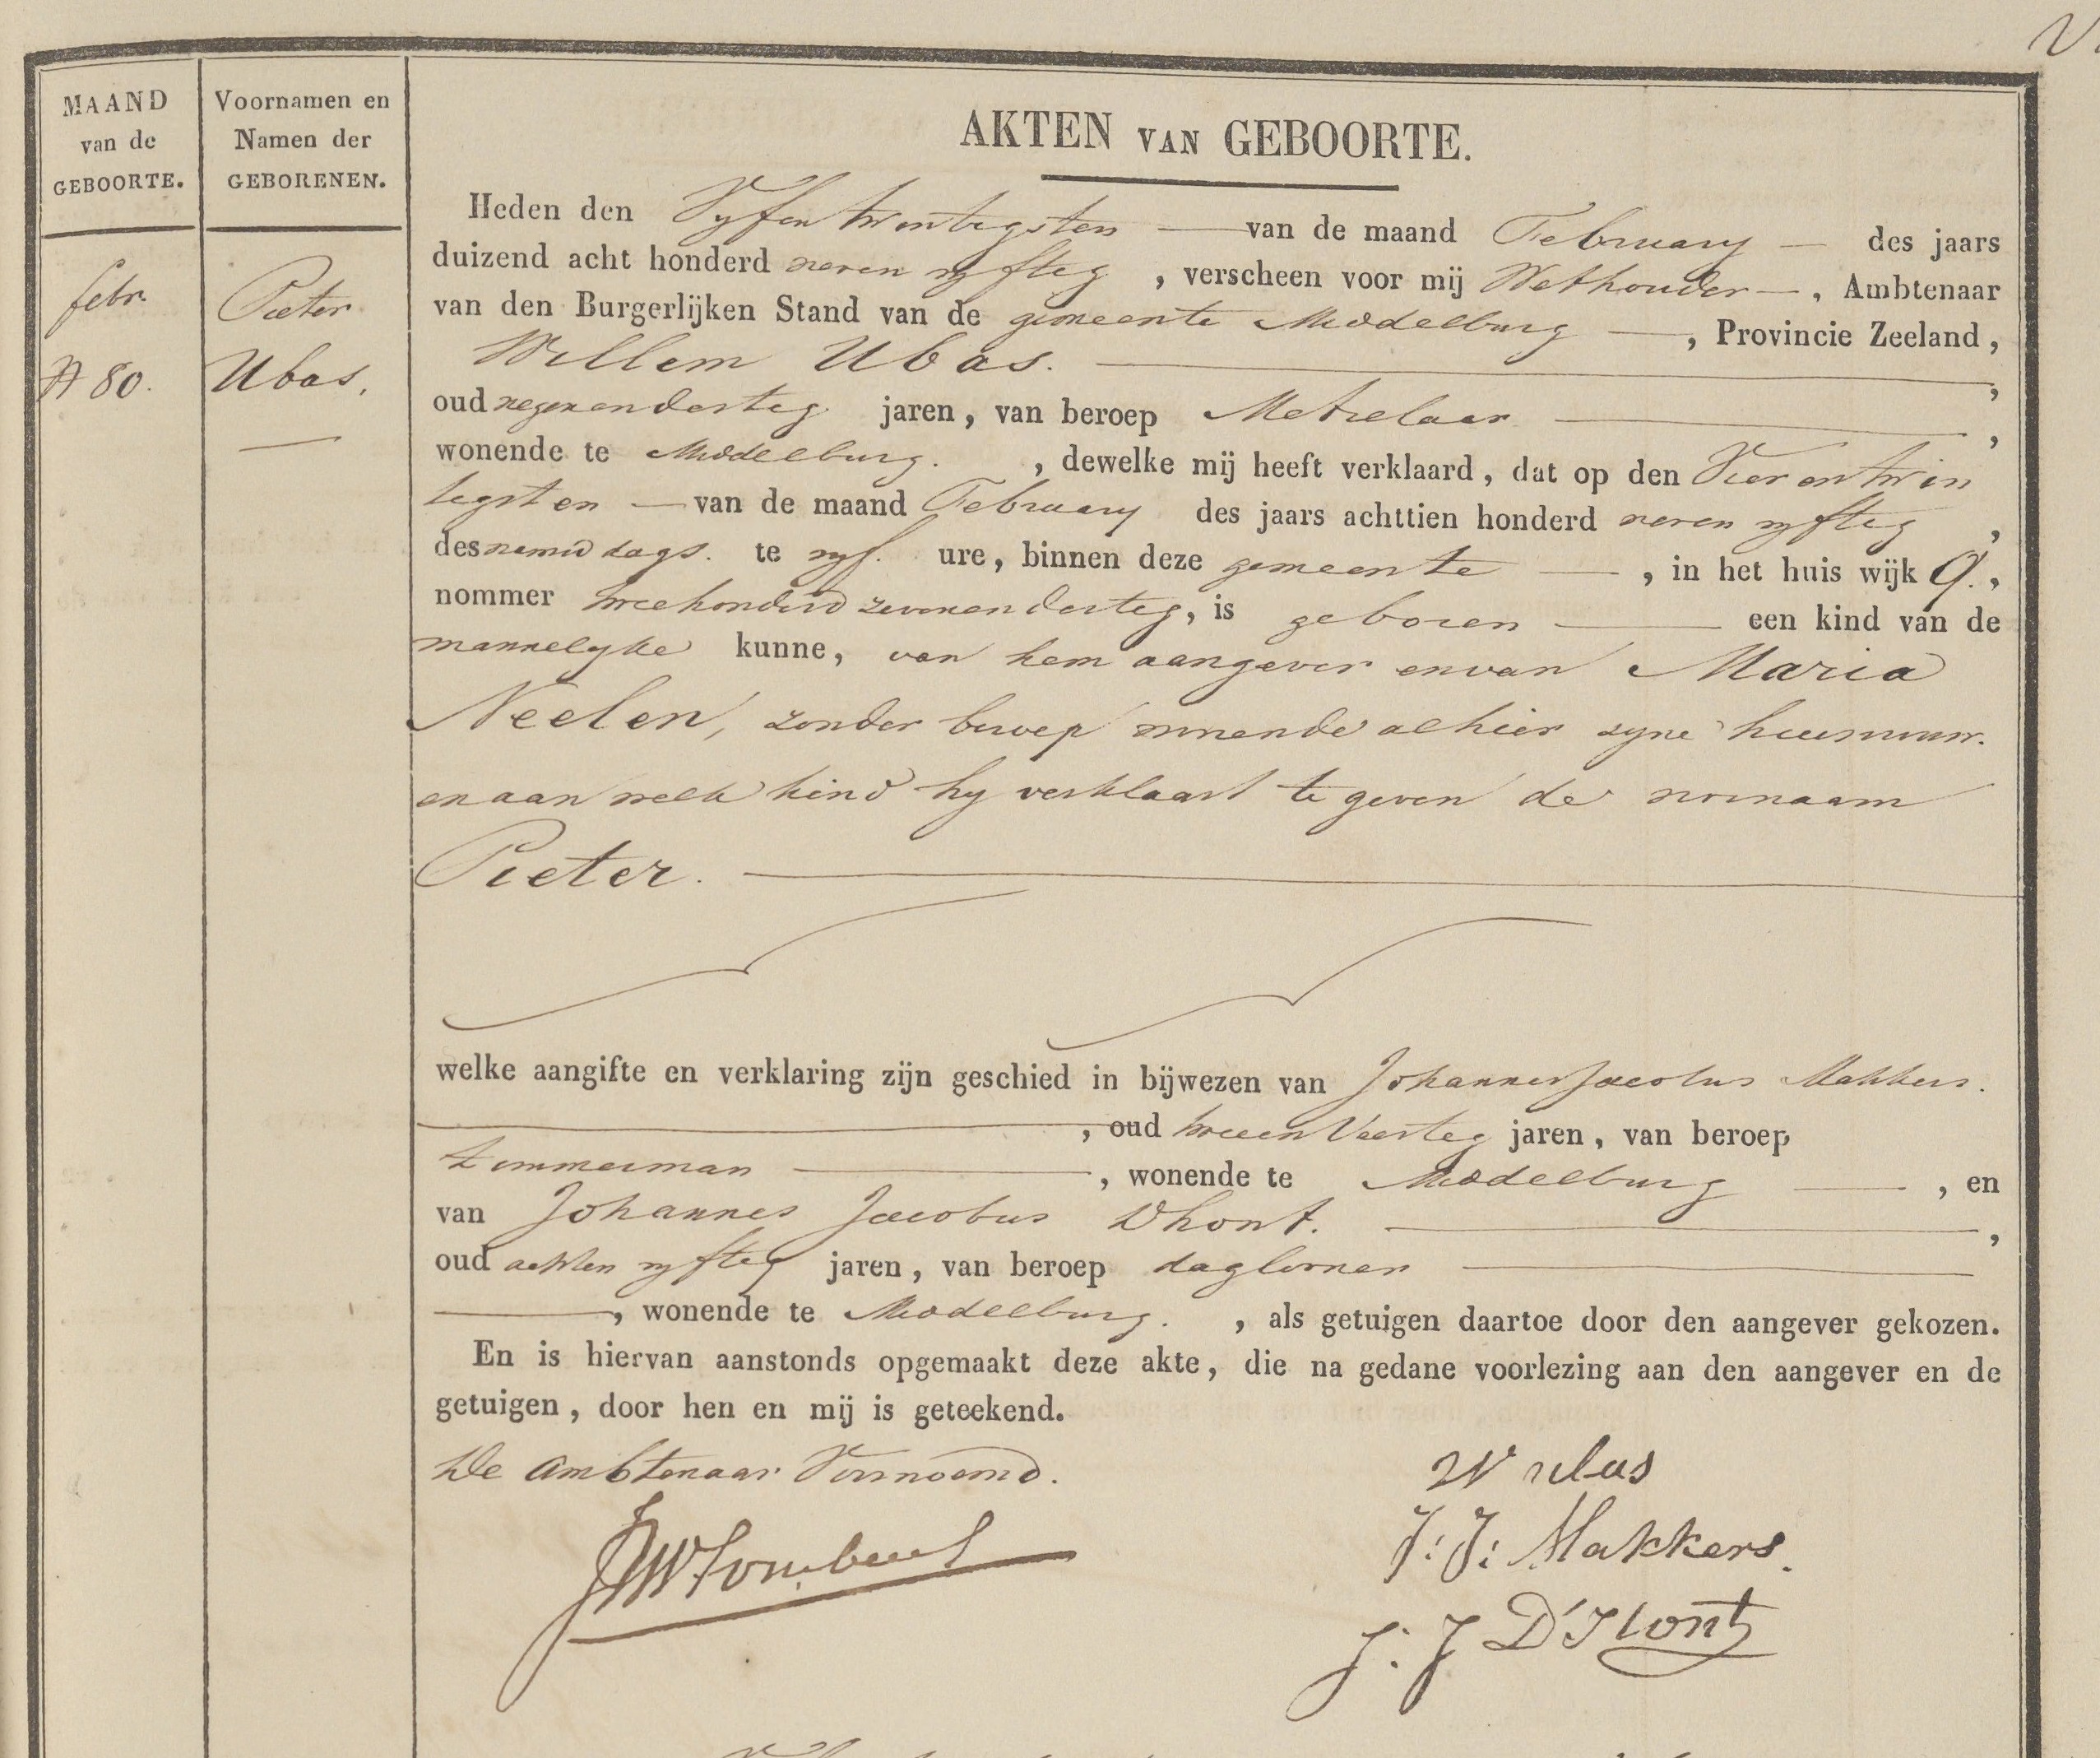 MAAND
van de
GEBOORTE.
Voornamen en
Namen der
GEBORENEN.
febr.
N 80.
Pieter
Ubas.
AKTEN VAN GEBOORTE.
Heden den Vyfentwintigsten van de maand February des jaars
duizend acht honderd zeven vyftig, verscheen voor mij Wethouder, Ambtenaar
van den Burgerlijken Stand van de gemeente Middelburg, Provincie Zeeland,
Willem Ubas.,
oud negenendertig jaren, van beroep Metzelaar,
wonende te Middelburg., dewelke mij heeft verklaard, dat op den Vierentwin
tigsten van de maand February des jaars achttien honderd zeven vyftig,
des namiddags. te vyf. ure, binnen deze gemeente, in het huis wijk Q.,
nommer tweehonderd zevenendertig, is geboren een kind van de
mannelyke kunne, van hem aangever en van Maria
Neelen, zonder beroep wonende alhier zyne huisvrouw.
en aan welk kind hy verklaart te geven de voornaam
Pieter.
welke aangifte en verklaring zijn geschied in bijwezen van Johannes Jacobus Makkers.
, oud tweeen Veertig jaren, van beroep
timmerman, wonende te Middelburg, en
van Johannes Jacobus Dhont.,
oud achten vyftig jaren, van beroep daglooner
, wonende te Middelburg., als getuigen daartoe door den aangever gekozen.
En is hiervan aanstonds opgemaakt deze akte, die na gedane voorlezing aan den aangever en de
getuigen, door hen en mij is geteekend.
De Ambtenaar Voornoemd.
W ubas
J: J: Makkers.
J. J D'Hont